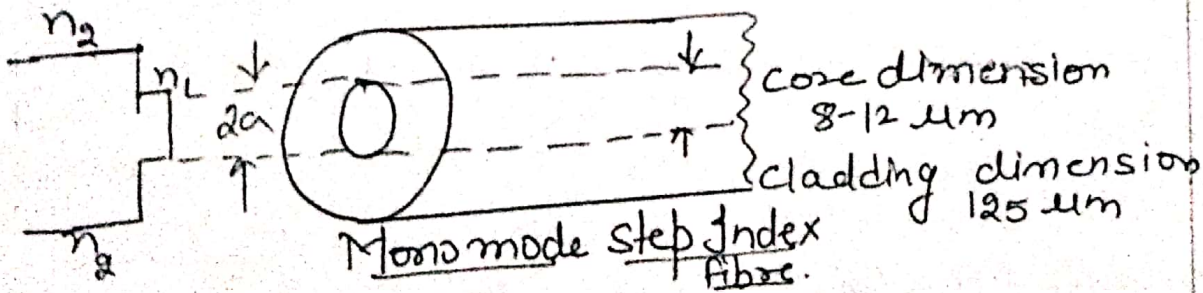 n2
n1
2a
n2
core dimension
8-12 μm
cladding dimension
125 μm
Monomode Step Index
fibre.